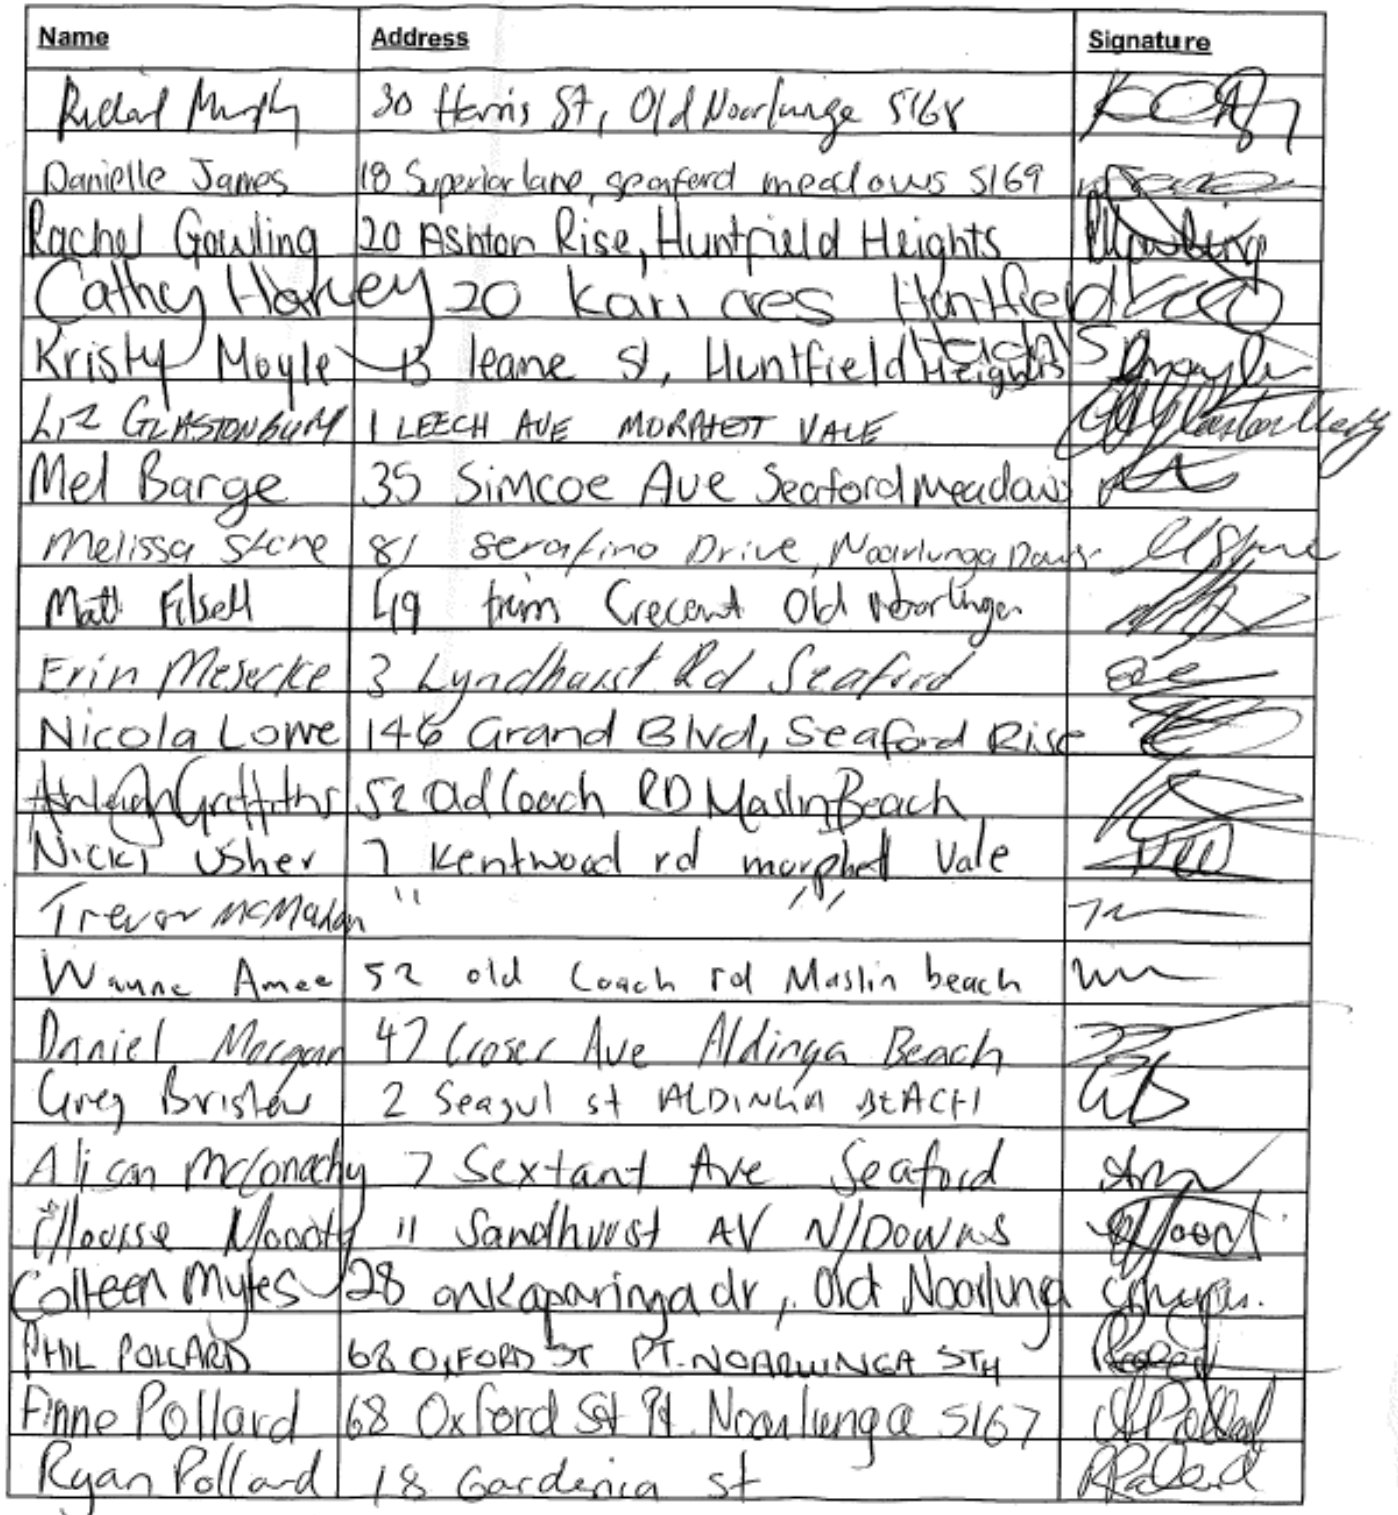 Name Address Signature
Richard Murphy 30 Harris St, Old Noarlunga 5168
Danielle James 18 Superior lane, seaford meadows 5169
Rachel Gowling 20 Ashton Rise, Huntfield Heights
Cathy Harvey 20 Kari cres Huntfield Heights
Kristy Moyle 13 leane st, Huntfield Heights
Liz GLASTONBURY 1 LEECH AVE MORPHETT VALE
Mel Barge 35 Simcoe Ave Seaford meadows
Melissa Stone 81 Serafino Drive, Noarlunga Downs
Matt Filsell 49 Crecent Old Noarlunga
Erin Meserke 3 Lyndhurst Rd Seaford
Nicola Lowe 146 Grand Blvd, Seaford Rise
Ashleigh Griffiths 52 Old Coach RD Maslin Beach
Nicki Usher 7 Kentwood rd morphett Vale
Trevor McMahon " "
Wayne Amee 52 old Coach rd Maslin beach
Daniel Morgan 47 Croser Ave Aldinga Beach
Greg Bristow 2 Seagul st ALDINGA BEACH
Alison McConachy 7 Sextant Ave Seaford
Moody 11 Sandhurst AV N/DOWNS
Colleen Myles 28 onkaparinga dr, Old Noarlunga
PHIL POLLARD 68 OXFORD ST PT. NOARLUNGA STH
Pollard 68 Oxford St Pt. Noarlunga 5167
Ryan Pollard 18 Gardenia st